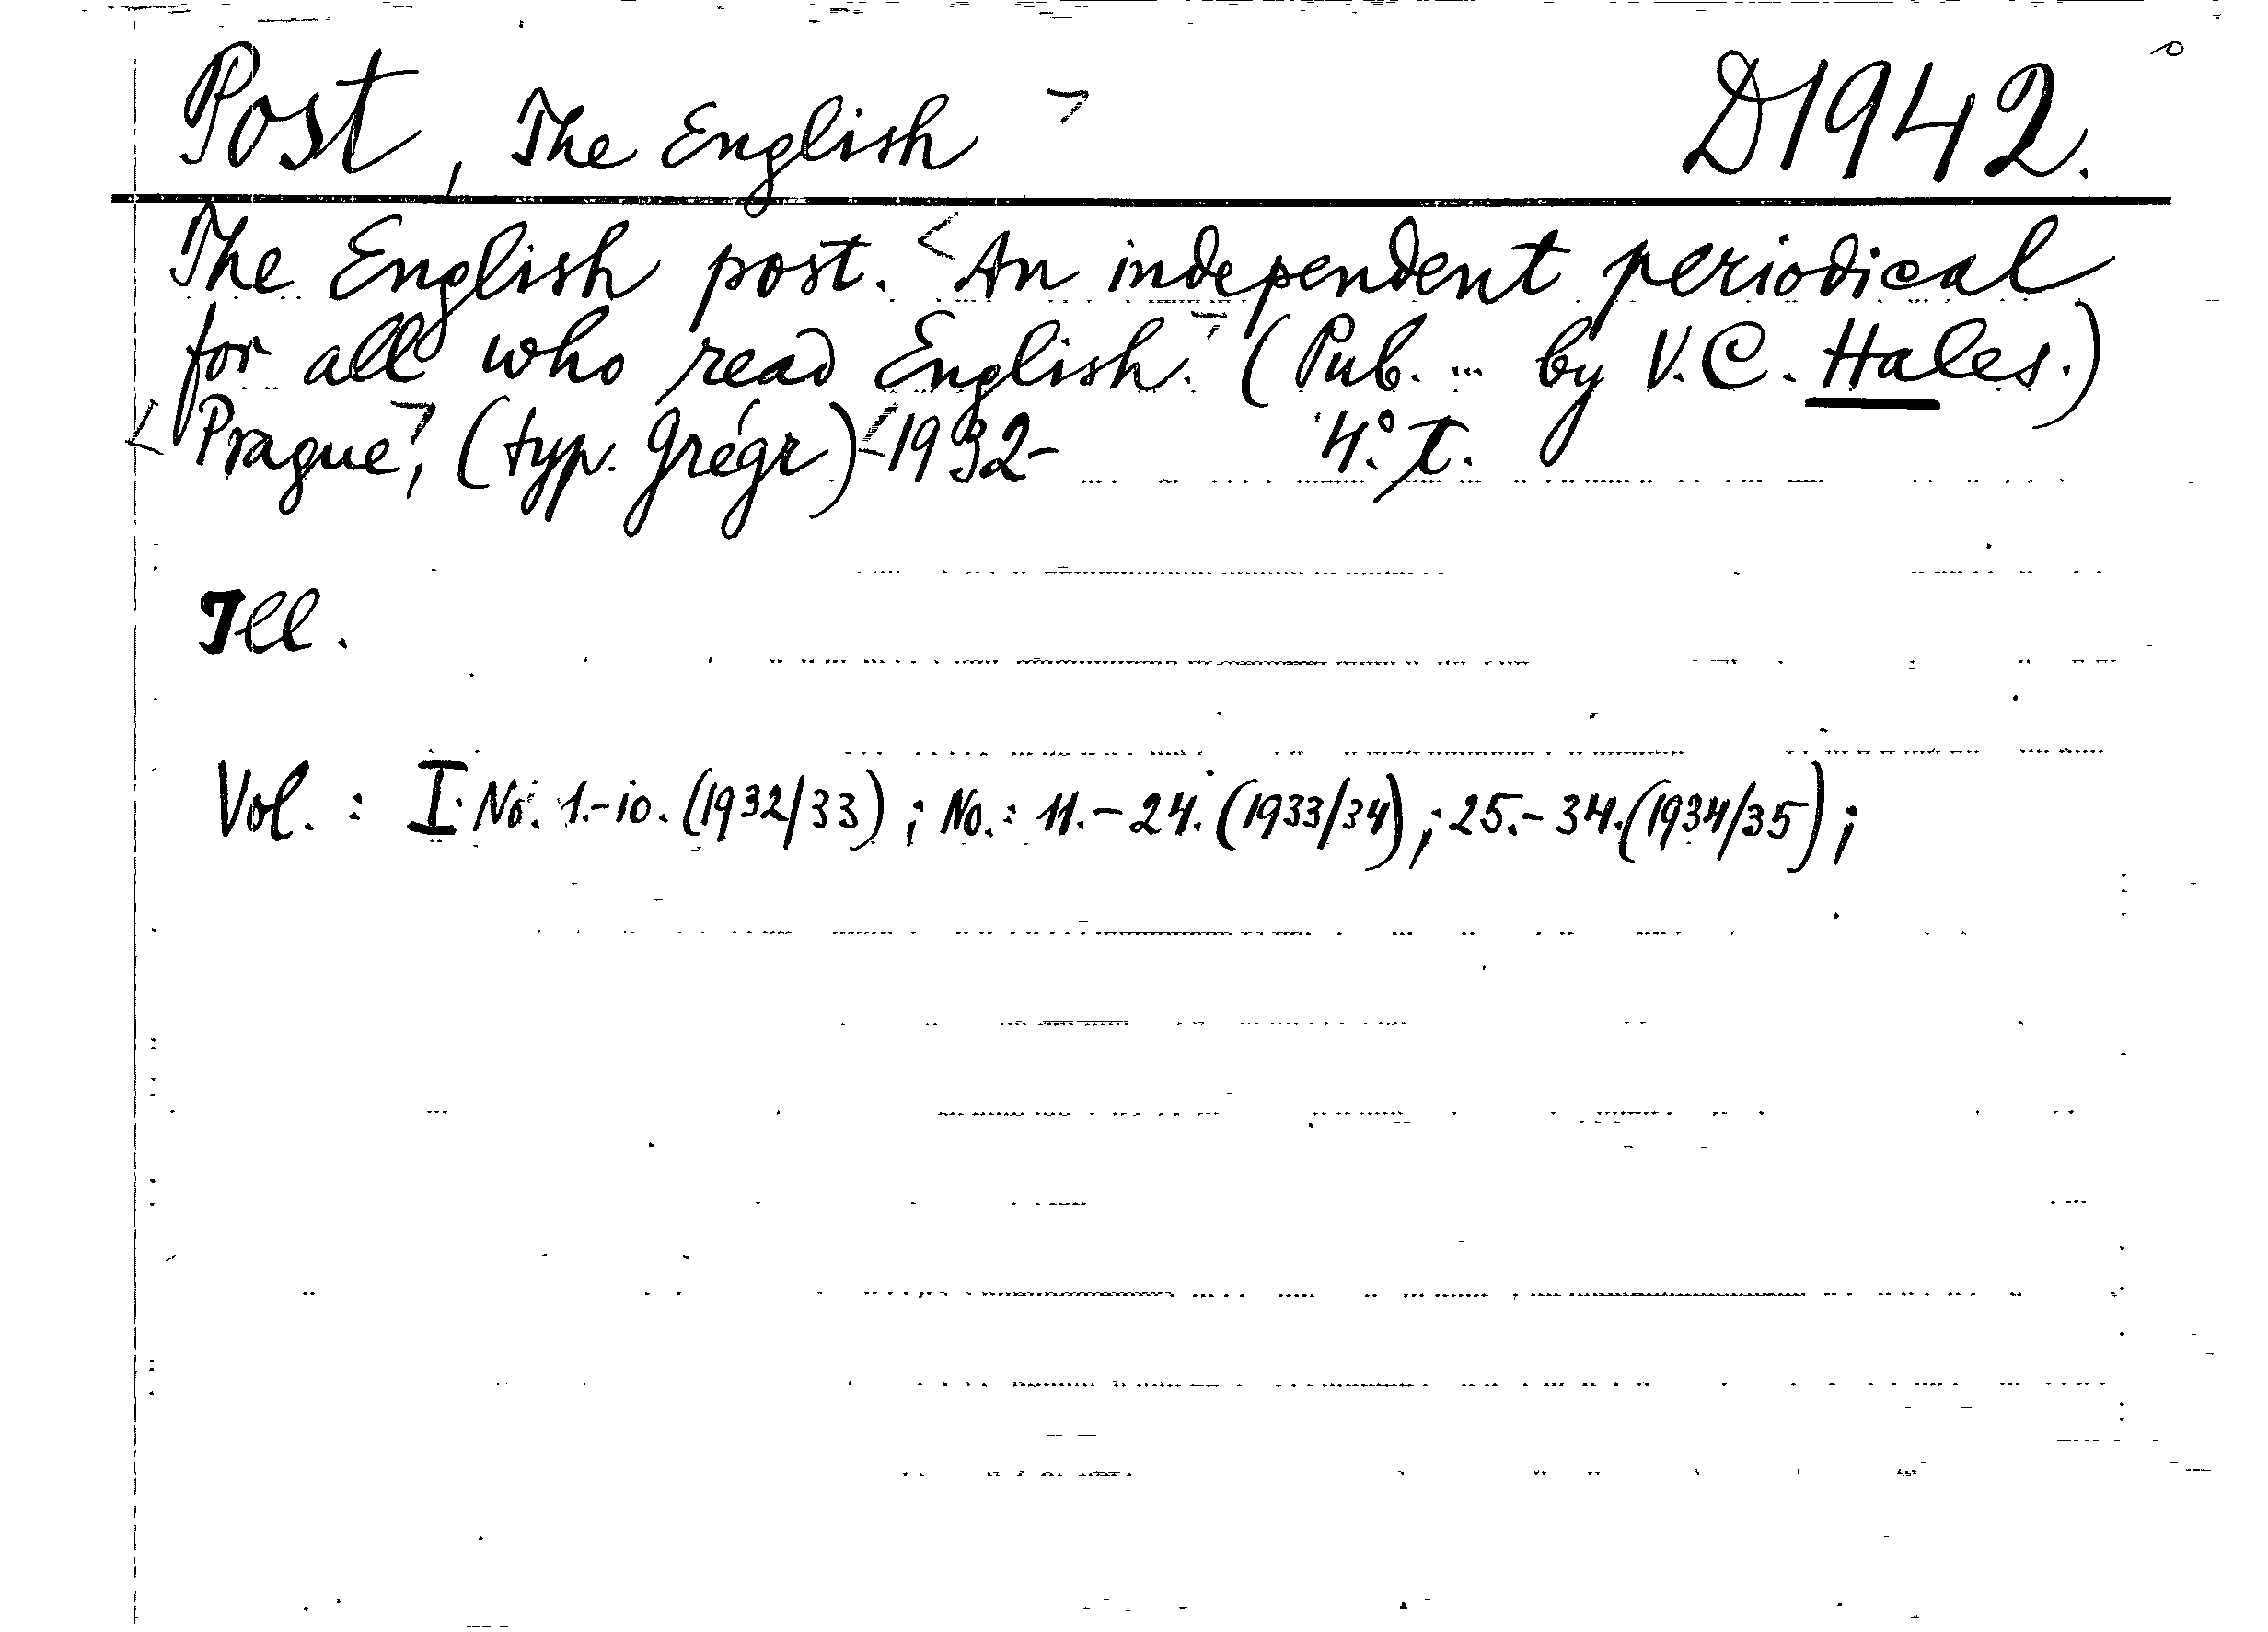 Post, The English > D1942.
The English post. <An independent periodical
for all who read English.> (Pub. ... by V.C. Hales.)
<Prague>, (typ. Grégr) <1932- 4°. T.
Ill.
Vol. : I. No. 1.-10. (1932/33) ; No. : 11.-24. (1933/34) ; 25.-34. (1934/35) ;